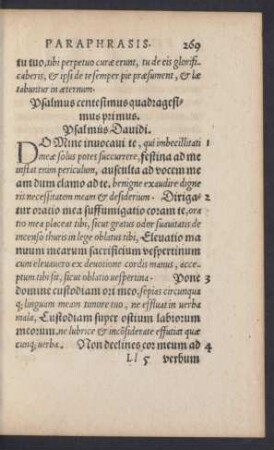 PARAPHRASIS. 269
tu tuo, tibi perpetuo curæ erunt, tu de eis glorifi
caberis, & ipsi de te semper pie præsument, & læ
tabuntur in æternum.
Psalmus centesimus quadragesi
mus primus.
Psalmus Dauidi.
DOMine inuocaui te, qui imbecillitati 1
meæ solus potes succurrere, festina ad me
instat enim periculum, ausculta ad vocem me
am dum clamo ad te, benigne exaudire digne
ris necessitatem meam & desiderium. Diriga- 2
tur oratio mea suffumigatio coram te, ora
tio mea placeat tibi, sicut gratus odor suauitatis de
incenso thuris in lege oblatus tibi, Eleuatio ma
nuum mearum sacrificium vespertinum
cum eleuauero ex deuotione cordis manus, acce-
ptum tibi sit, sicut oblatio uespertina. Pone 3
domine custodiam ori meo, sepias circunqua
q; linguam meam timore tuo, ne effluat in uerba
mala, Custodiam super ostium labiorum
meorum. ne lubrice & incōsiderate effutiat quæ
cunq; uerba. Non declines cor meum ad 4
Ll 5 verbum